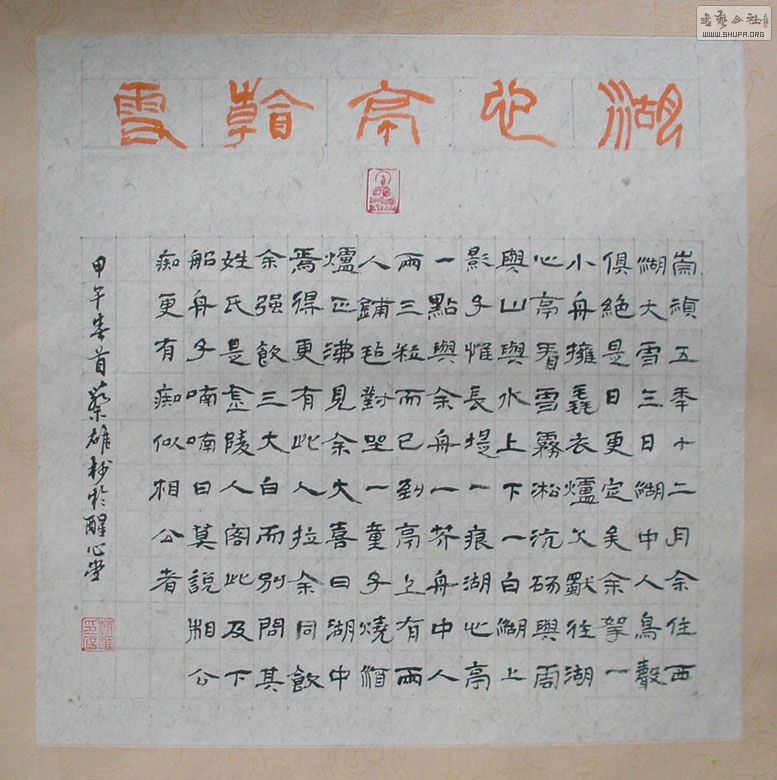 書藝公社
WWW.SHUFA.ORG
湖心亭看雪
崇禎五年十二月余住西
湖大雪三日湖中人鳥聲
俱絕是日更定矣余挐一
小舟擁毳衣爐火獨往湖
心亭看雪霧淞沆碭與雲
與山與水上下一白湖上
影子惟長堤一痕湖心亭
一點與余舟一芥舟中人
兩三粒而已到亭上有兩
人鋪氈對坐一童子燒酒
爐正沸見余大喜曰湖中
焉得更有此人拉余同飲
余強飲三大白而別問其
姓氏是金陵人客此及下
船舟子喃喃曰莫說相公
痴更有痴似相公者
甲午春首蔡雄於醒心堂